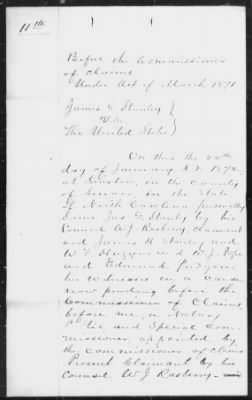 11th
Before the Commissioner
of Claims
Under Act of March 1871
James G Stanly }
V.S. }
The United States }
On this the 24th
day of January A.D. 1872,
at Kinston, in the county
of Lenoir, in the State
of North Carolina personally
came Jas G. Stanly by his
Counsel W J Rasbury claimant
and James H Stanly and
W T Huggins and W J Pope
and Edmund
his witnesses in a Cause
now pending before the
Commissioner of Claims,
before me, a Notary
and Special Com-
missioner, appointed by
the Commissioner of Claims
Present Claimant by his
Counsel W J Rasbury.